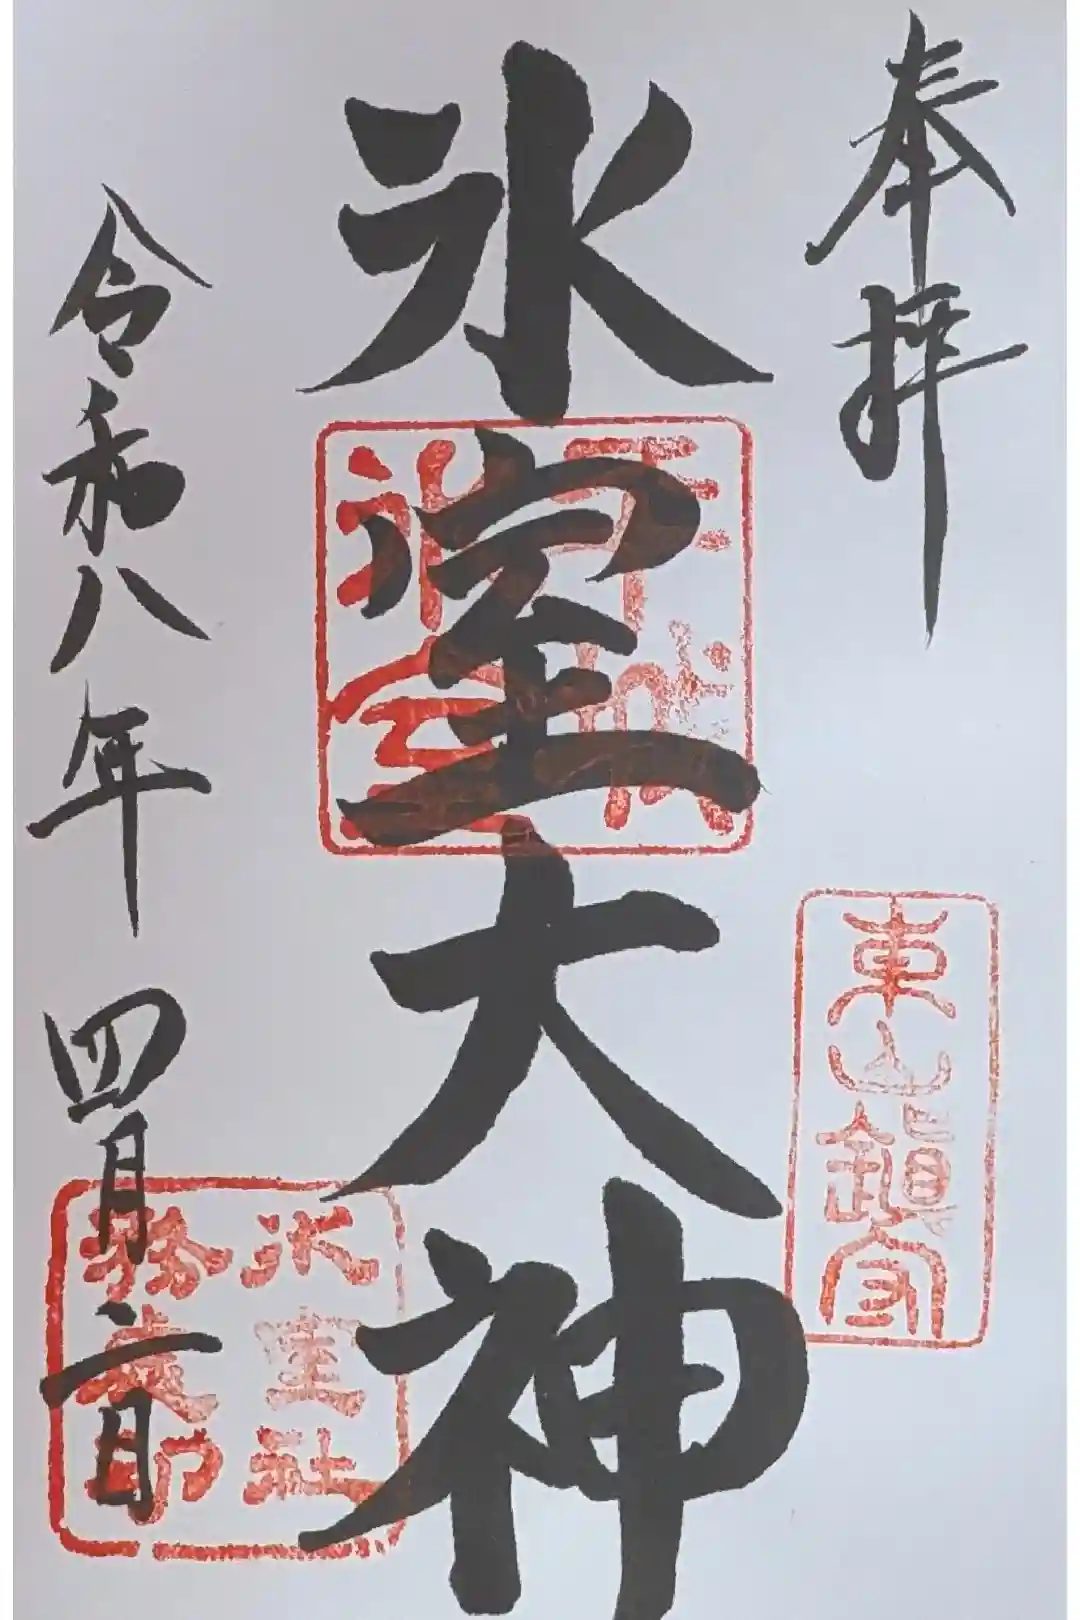 奉拝
東山鎮守
氷室大神
平城
氷室
令和八年 四月二日
氷室社
務之印